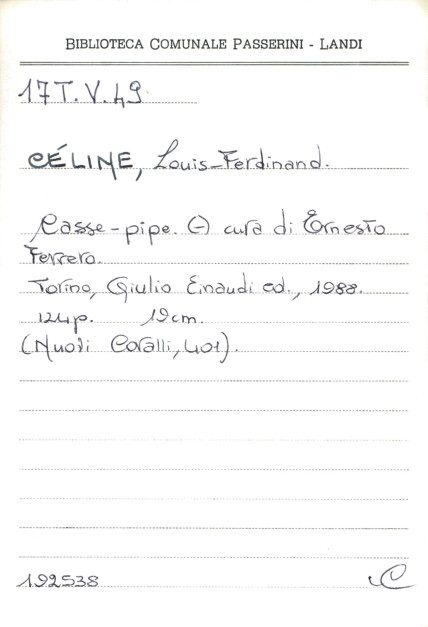 BIBLIOTECA COMUNALE PASSERINI - LANDI
17 T. V. 49
CÉLINE, Louis-Ferdinand.
Casse-pipe. (-) cura di Ernesto
Ferrero.
Torino, Giulio Einaudi ed., 1988.
124p. 19cm.
(Nuovi Coralli, 401).
192538
C